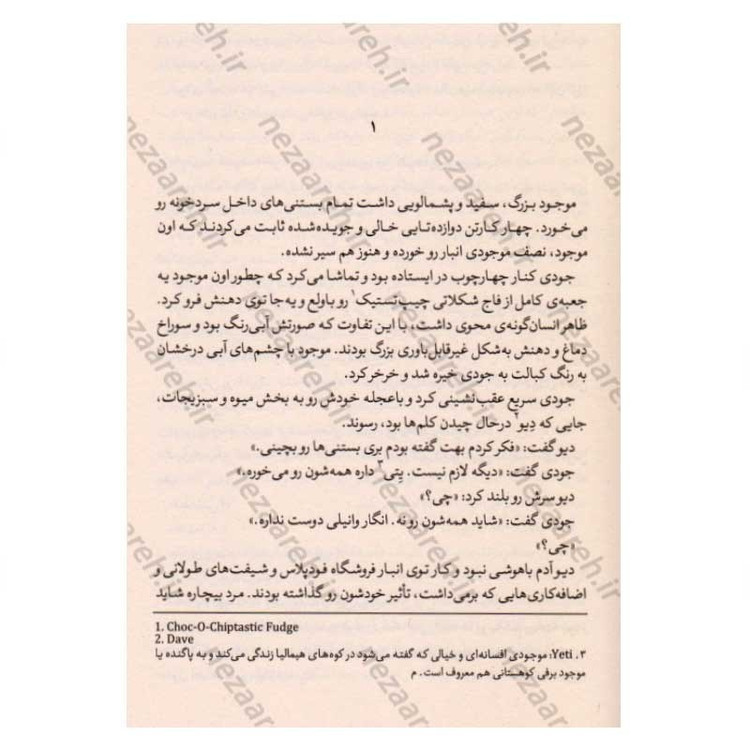 ۱
موجود بزرگ، سفید و پشمالویی داشت تمام بستنی‌های داخل سردخونه رو
می‌خورد. چهار کارتن دوازده‌تایی خالی و جویده‌شده ثابت می‌کردند که اون
موجود، نصف موجودی انبار رو خورده و هنوز هم سیر نشده.
جودی کنار چهارچوب در ایستاده بود و تماشا می‌کرد که چطور اون موجود یه
جعبه‌ی کامل از فاج شکلاتی چیپ‌تستیک۱ رو باولع و یه‌جا توی دهنش فرو کرد.
ظاهر انسان‌گونه‌ی محوی داشت، با این تفاوت که صورتش آبی‌رنگ بود و سوراخ
دماغ و دهنش به‌شکل غیرقابل‌باوری بزرگ بودند. موجود با چشم‌های آبی درخشان
به رنگ کبالت به جودی خیره شد و خرخر کرد.
جودی سریع عقب‌نشینی کرد و باعجله خودش رو به بخش میوه و سبزیجات،
جایی که دیو۲ درحال چیدن کلم‌ها بود، رسوند.
دیو گفت: «فکر کردم بهت گفته بودم بری بستنی‌ها رو بچینی.»
جودی گفت: «دیگه لازم نیست. یتی۳ داره همه‌شون رو می‌خوره.»
دیو سرش رو بلند کرد: «چی؟»
جودی گفت: «شاید همه‌شون رو نه. انگار وانیلی دوست نداره.»
«چی؟»
دیو آدم باهوشی نبود و کار توی انبار فروشگاه فودپلاس و شیفت‌های طولانی و
اضافه‌کاری‌هایی که برمی‌داشت، تأثیر خودشون رو گذاشته بودند. مرد بیچاره شاید
1. Choc-O-Chiptastic Fudge
2. Dave
۳. Yeti: موجودی افسانه‌ای و خیالی که گفته می‌شود در کوه‌های هیمالیا زندگی می‌کند و به پاگنده یا
موجود برفی کوهستانی هم معروف است. م
nezaareh.ir